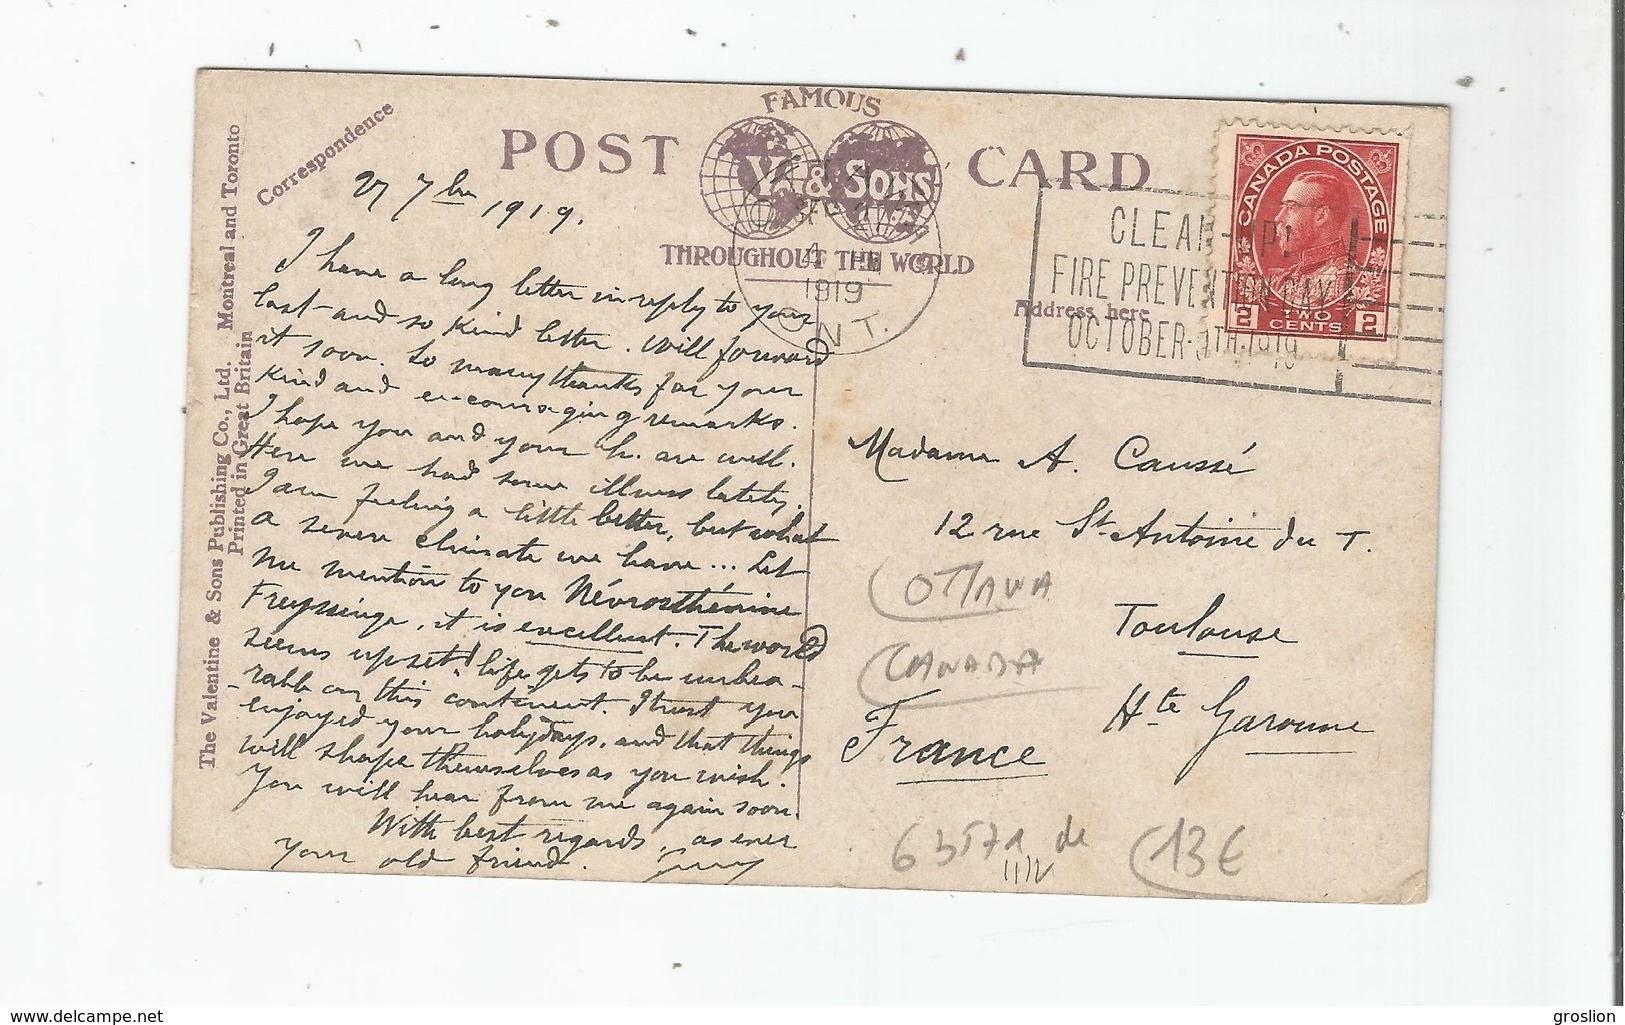 FAMOUS
POST CARD
V. & SONS
THROUGHOUT THE WORLD
Correspondence
Address here
The Valentine & Sons Publishing Co., Ltd. Montreal and Toronto
Printed in Great Britain
CANADA POSTAGE
2 TWO CENTS 2
OTTAWA
SEP 27
1919
ONT.
CLEAN UP!
FIRE PREVENTION DAY
OCTOBER 9TH. 1919
27 7bre 1919.
I have a long letter in reply to your
last and so kind letter. Will forward
it soon. So many thanks for your
kind and encouraging remarks.
I hope you and your h. are well.
Here we had some illness lately.
I am feeling a little better, but what
a severe climate we have... Let
me mention to you Névrosthénine
Freyssinge, it is excellent. The world
seems upset! life gets to be unbea-
rable on this continent. I trust you
enjoyed your holydays, and that things
will shape themselves as you wish.
You will hear from me again soon.
With best regards, as ever
your old friend.
Madame A. Caussé
12 rue St Antoine du T.
Toulouse
Hte Garonne
France
OTTAWA
CANADA
63571 de
13 €
delcampe.net
groslion